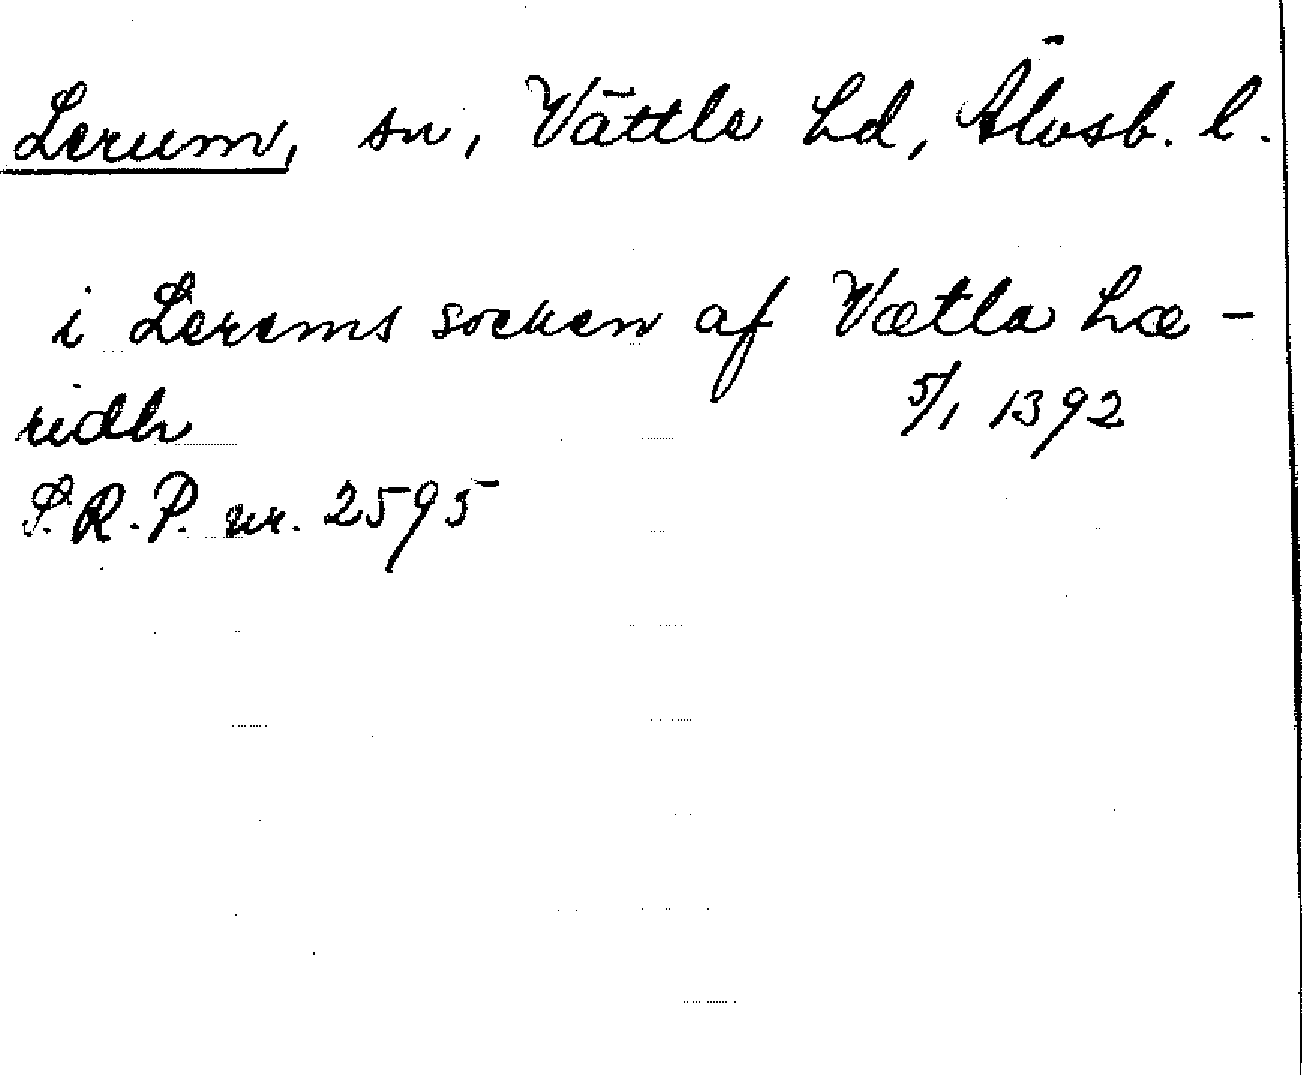 Lerum, sn, Vättle hd, Älvsb. l.
i Lerems socken af Vætla hæ-
ridh 5/1 1392
S.R.P. nr. 2595